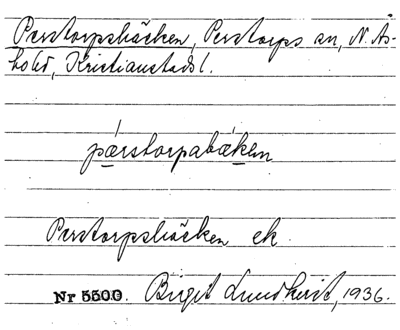 Perstorpsbäcken, Perstorps sn, N. Ås-
bohd, Kristianstads l.
pærstorpabækən
Perstorpsbäcken ek.
Nr 5500. Birgit Lundkvist, 1936.